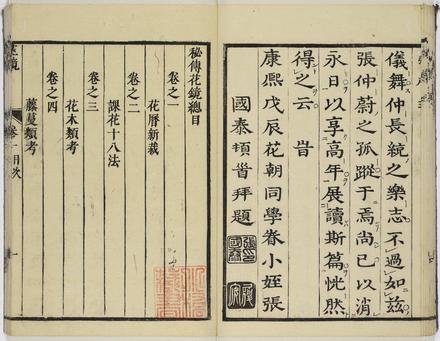 儀舞仲長統之樂志不過如茲
張仲蔚之孤蹤于焉尚已以消
永日以享高年展讀斯篇恍然
得之云　旹
康熙戊辰花朝同學眷小姪張
國泰頓首拜題
秘傳花鏡總目
卷之一
花曆新裁
卷之二
課花十八法
卷之三
花木類考
卷之四
藤蔓類考
花鏡
卷一目次
一